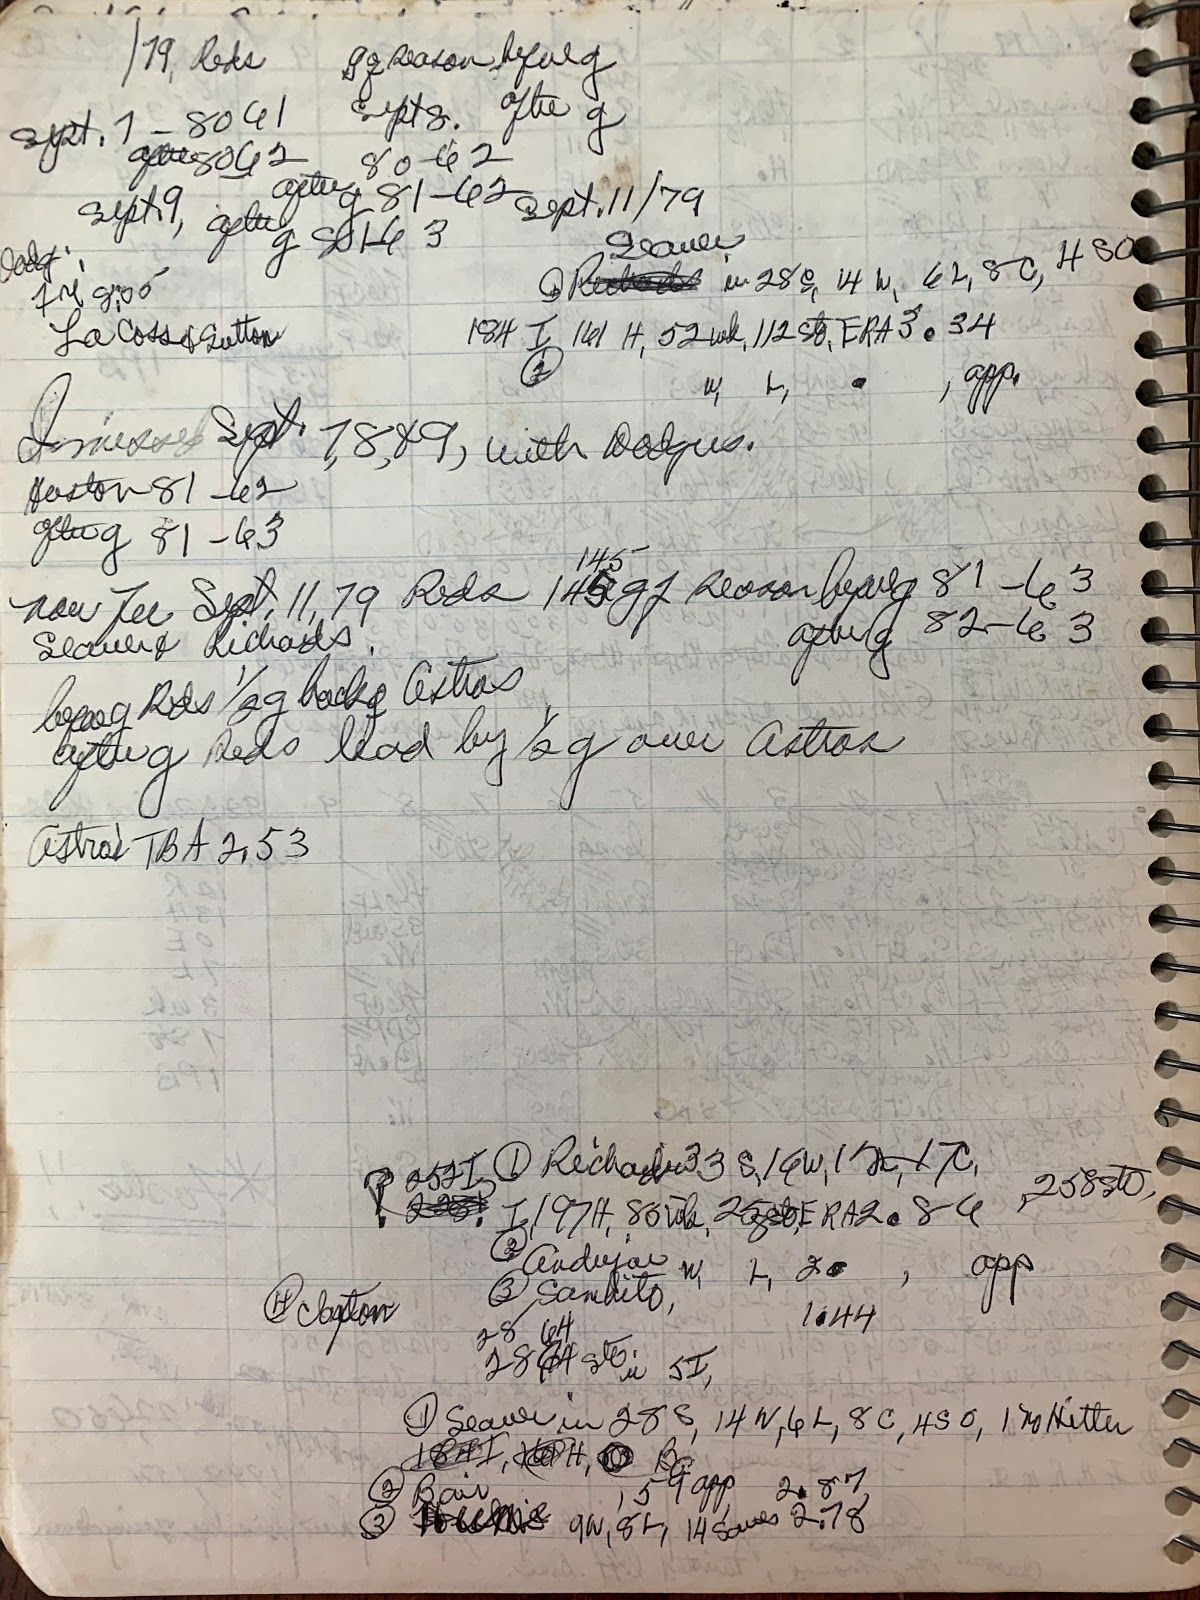 /79, Reds gq season before g
Sept. 7 - 80 61 Sept 8. after g
after 80 62 80-62
Sept. 9, after g 81-62 Sept. 11/79
after g 81-63
Dodg.
Fri 8:05
La Coss & Sutton
Seaver
① Richards in 28 S, 14 W, 6 L, 8 C, 4 SO
184 I 161 H, 52 wk, 112 sto, ERA 3.34
② W, L, . , app.
I missed Sept. 7, 8, & 9, with Dodgers.
Huston 81-62
after g 81-63
145
now Tue Sept. 11, 79 Reds 145 g of season before g 81-63
Seaver & Richards. after g 82-63
before g Reds 1/2 g back of Astros
after g Reds lead by 1/2 g over Astros
Astros TBA 2,53
252 I, ① Richards 33 S, 16 W, 17 C,
? I, 197 H, 85 wk, ERA 2.86, 258 sto,
② Andujar W, L, 2. , app
③ Sambito, 1.44
④ Clayton
28 64
sto. in 5 I,
① Seaver in 28 S, 14 W, 6 L, 8 C, 4 SO, 1 no Hitter
184 I, H,
② Bair , 59 app, 2.87,
③ Hume 9 W, 8 L, 14 Saves 2.78